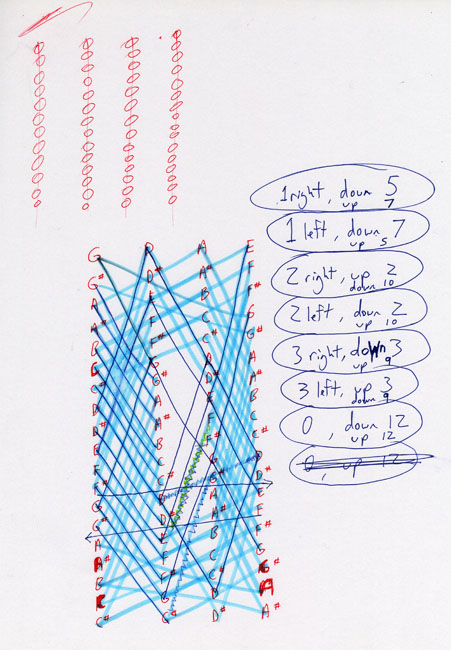 G D A E
G# D# A# F
A E B F#
A# F C G
B F# C# G#
C G D A
C# G# D# A#
D A E B
D# A# F C
E B F# C#
F C G D
F# C# G# D#
G D A E
G# D# A# F
A E B F#
A# F C G
B F# C# G#
C G D A
C# G# D# A#
1 right, down 5
up 7
1 left, down 7
up 5
2 right, up 2
down 10
2 left, down 2
up 10
3 right, down 3
up 9
3 left, up 3
down 9
0, down 12
up 12
0, up 12